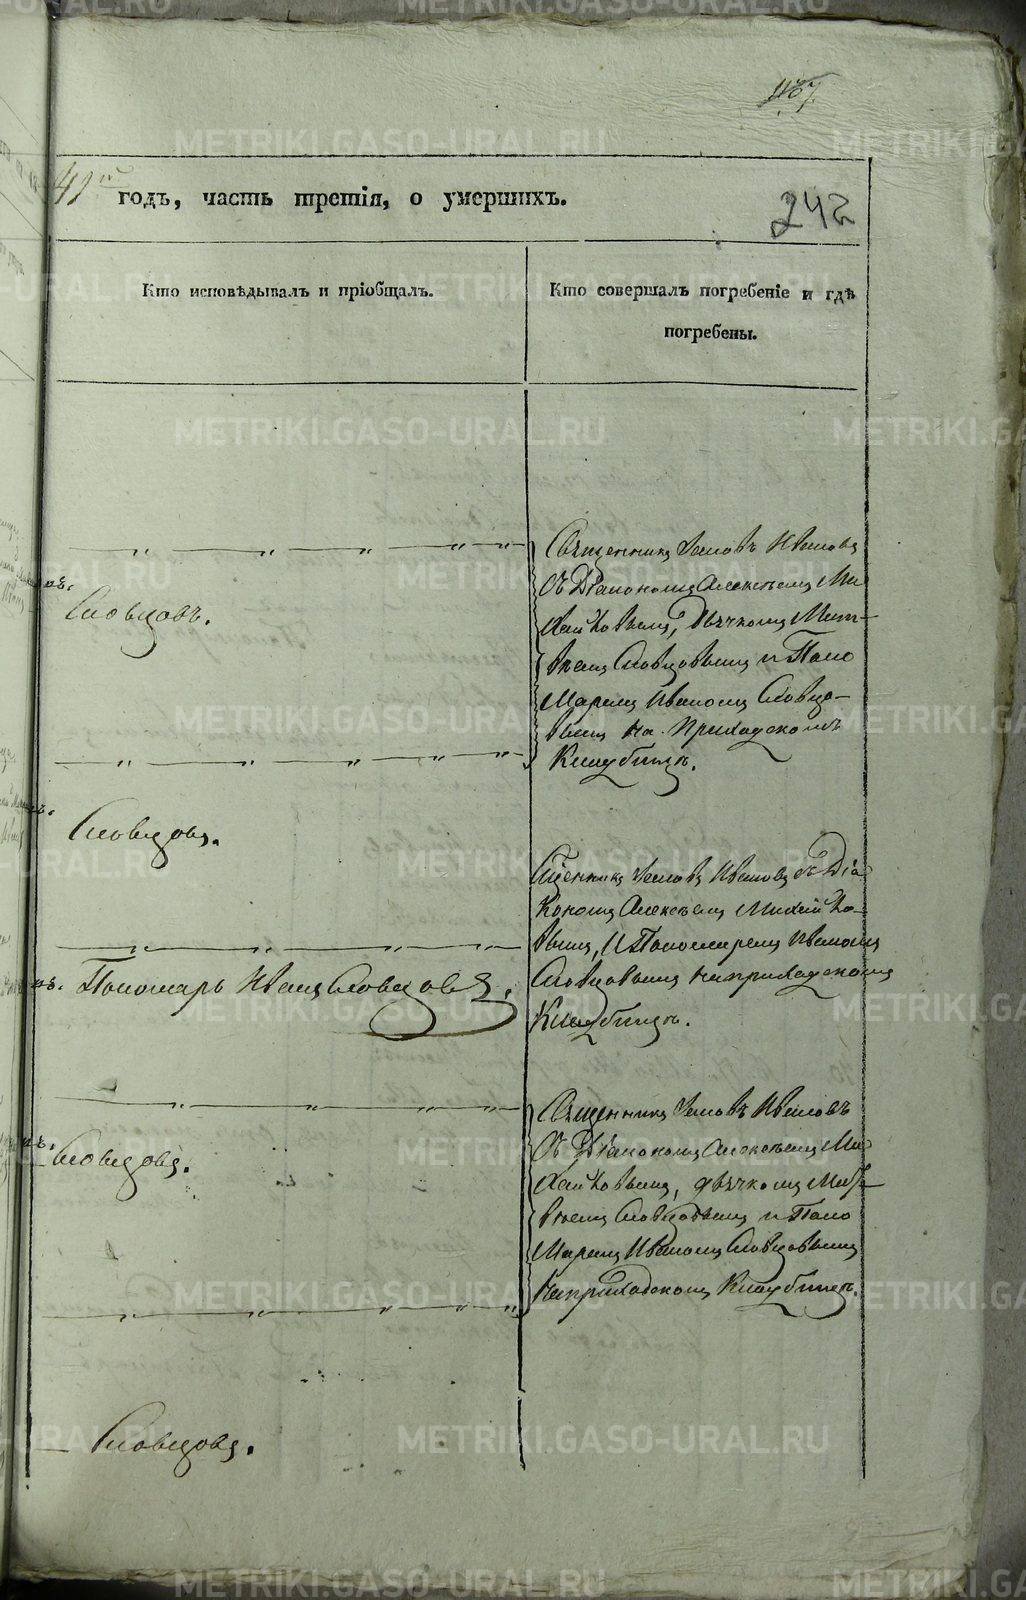 41го годъ, часть третія, о умершихъ.
242
Кто исповѣдывалъ и пріобщалъ.
Кто совершалъ погребеніе и гдѣ
погребены.
Священникъ Іаковъ Ивановъ
съ Діакономъ Алексѣемъ Ми
хайловымъ, Дьячкомъ Мат-
вѣемъ Словцовымъ и Поно
маремъ Иваномъ Словцо-
вымъ на Приходскомъ
Кладбищѣ.
Словцовъ.
Словцовъ.
Сщенникъ Іаковъ Ивановъ съ Діа
кономъ Алексѣемъ Михайло-
вымъ, и Пономаремъ Иваномъ
Словцовымъ на приходскомъ
Кладбищѣ.
Пономарь Иванъ Словцовъ.
Священникъ Іаковъ Ивановъ
съ Діакономъ Алексѣемъ Ми
хайловымъ, дьячкомъ Мат-
вѣемъ Словцовымъ и Поно
маремъ Иваномъ Словцовымъ
на приходскомъ Кладбищѣ.
Словцовъ.
Словцовъ.
METRIKI.GASO-URAL.RU